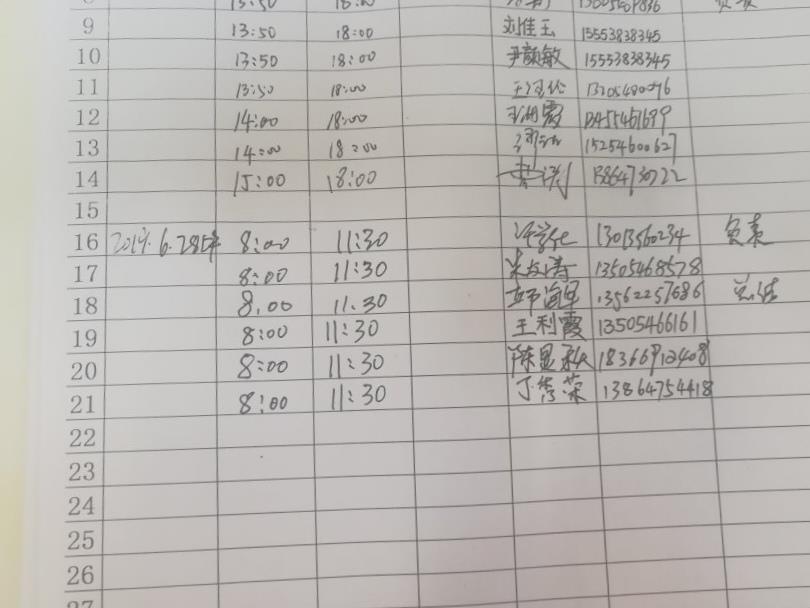 13:50 18:00
9 13:50 18:00 刘佳玉 15553838345
10 13:50 18:00 尹颜敏 15553838345
11 13:50 18:00 13205480076
12 14:00 18:00
13 14:00 18:00 15254600627
14 15:00 18:00 13864730722
15
16 2019.6.28 8:00 11:30 13013560234
17 8:00 11:30 13505468578
18 8.00 11.30 13562257686
19 8:00 11:30 王利霞 13505466161
20 8:00 11:30 陈显秋 18366912408
21 8:00 11:30 丁秀荣 13864754418
22
23
24
25
26
27